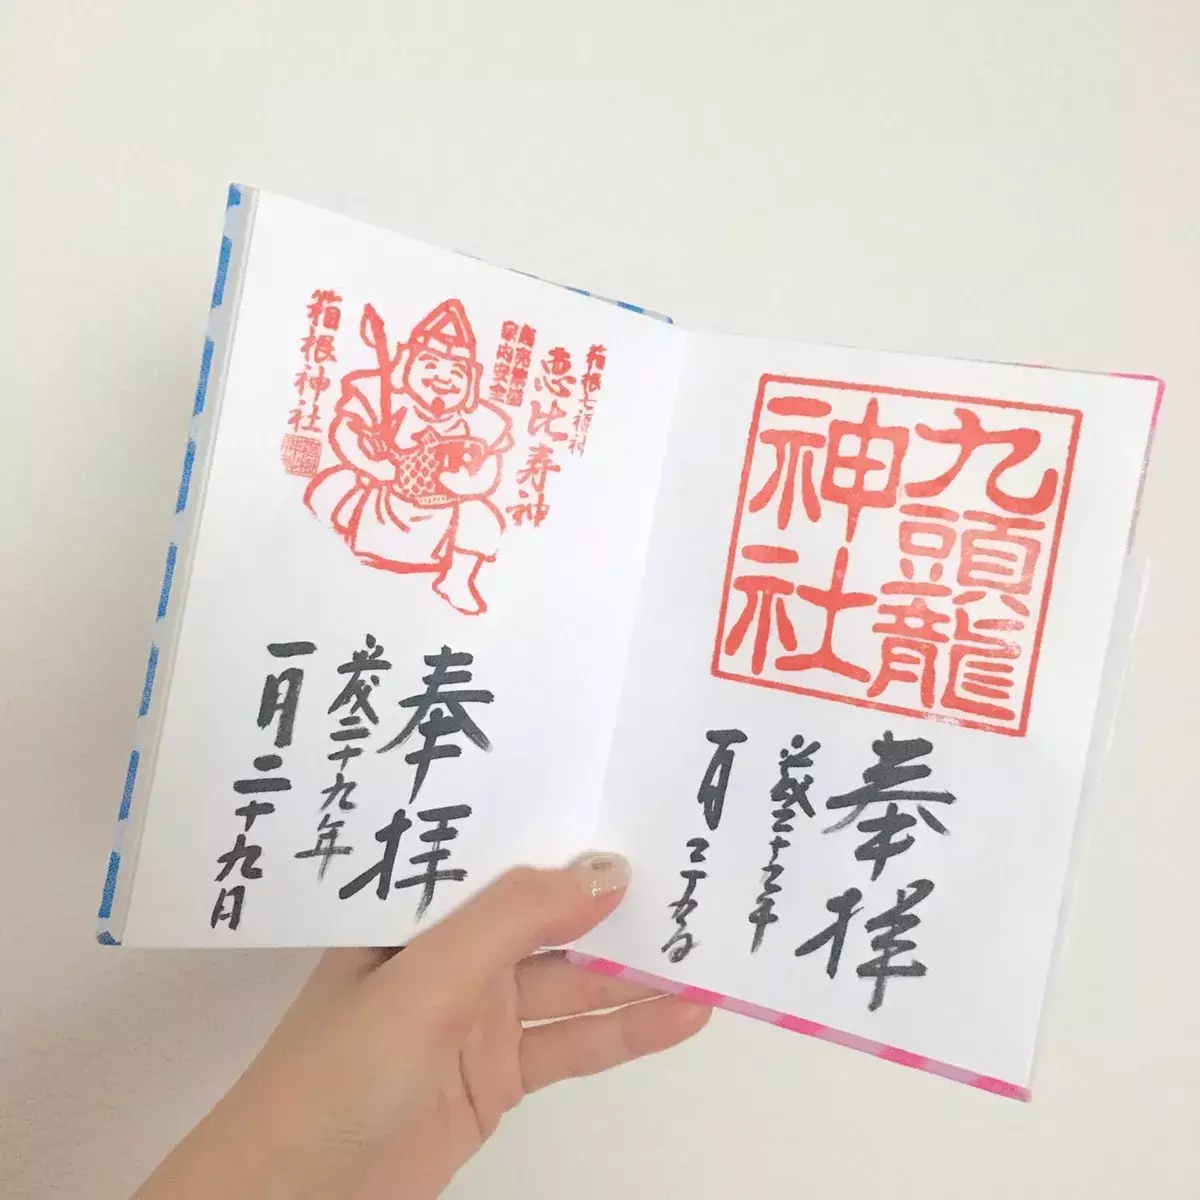 九頭龍
神社
奉拝
歳二十九年
一月二十九日
箱根七福神
恵比寿神
商売繁盛
家内安全
箱根神社
奉拝
歳二十九年
一月二十九日